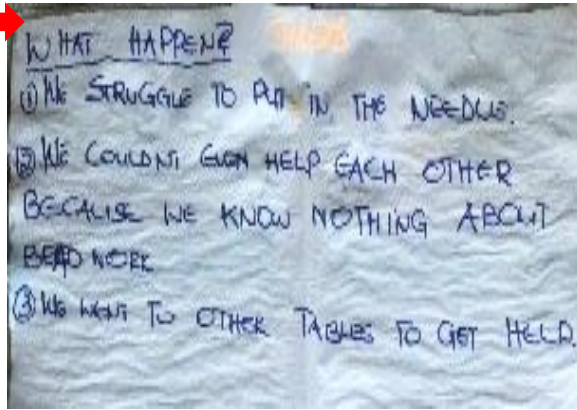 WHAT HAPPEN?
① WE STRUGGLE TO PUT IN THE NEEDLE.
② WE COULDNT EVEN HELP EACH OTHER
BECAUSE WE KNOW NOTHING ABOUT
BEAD WORK
③ WE WENT TO OTHER TABLES TO GET HELP.